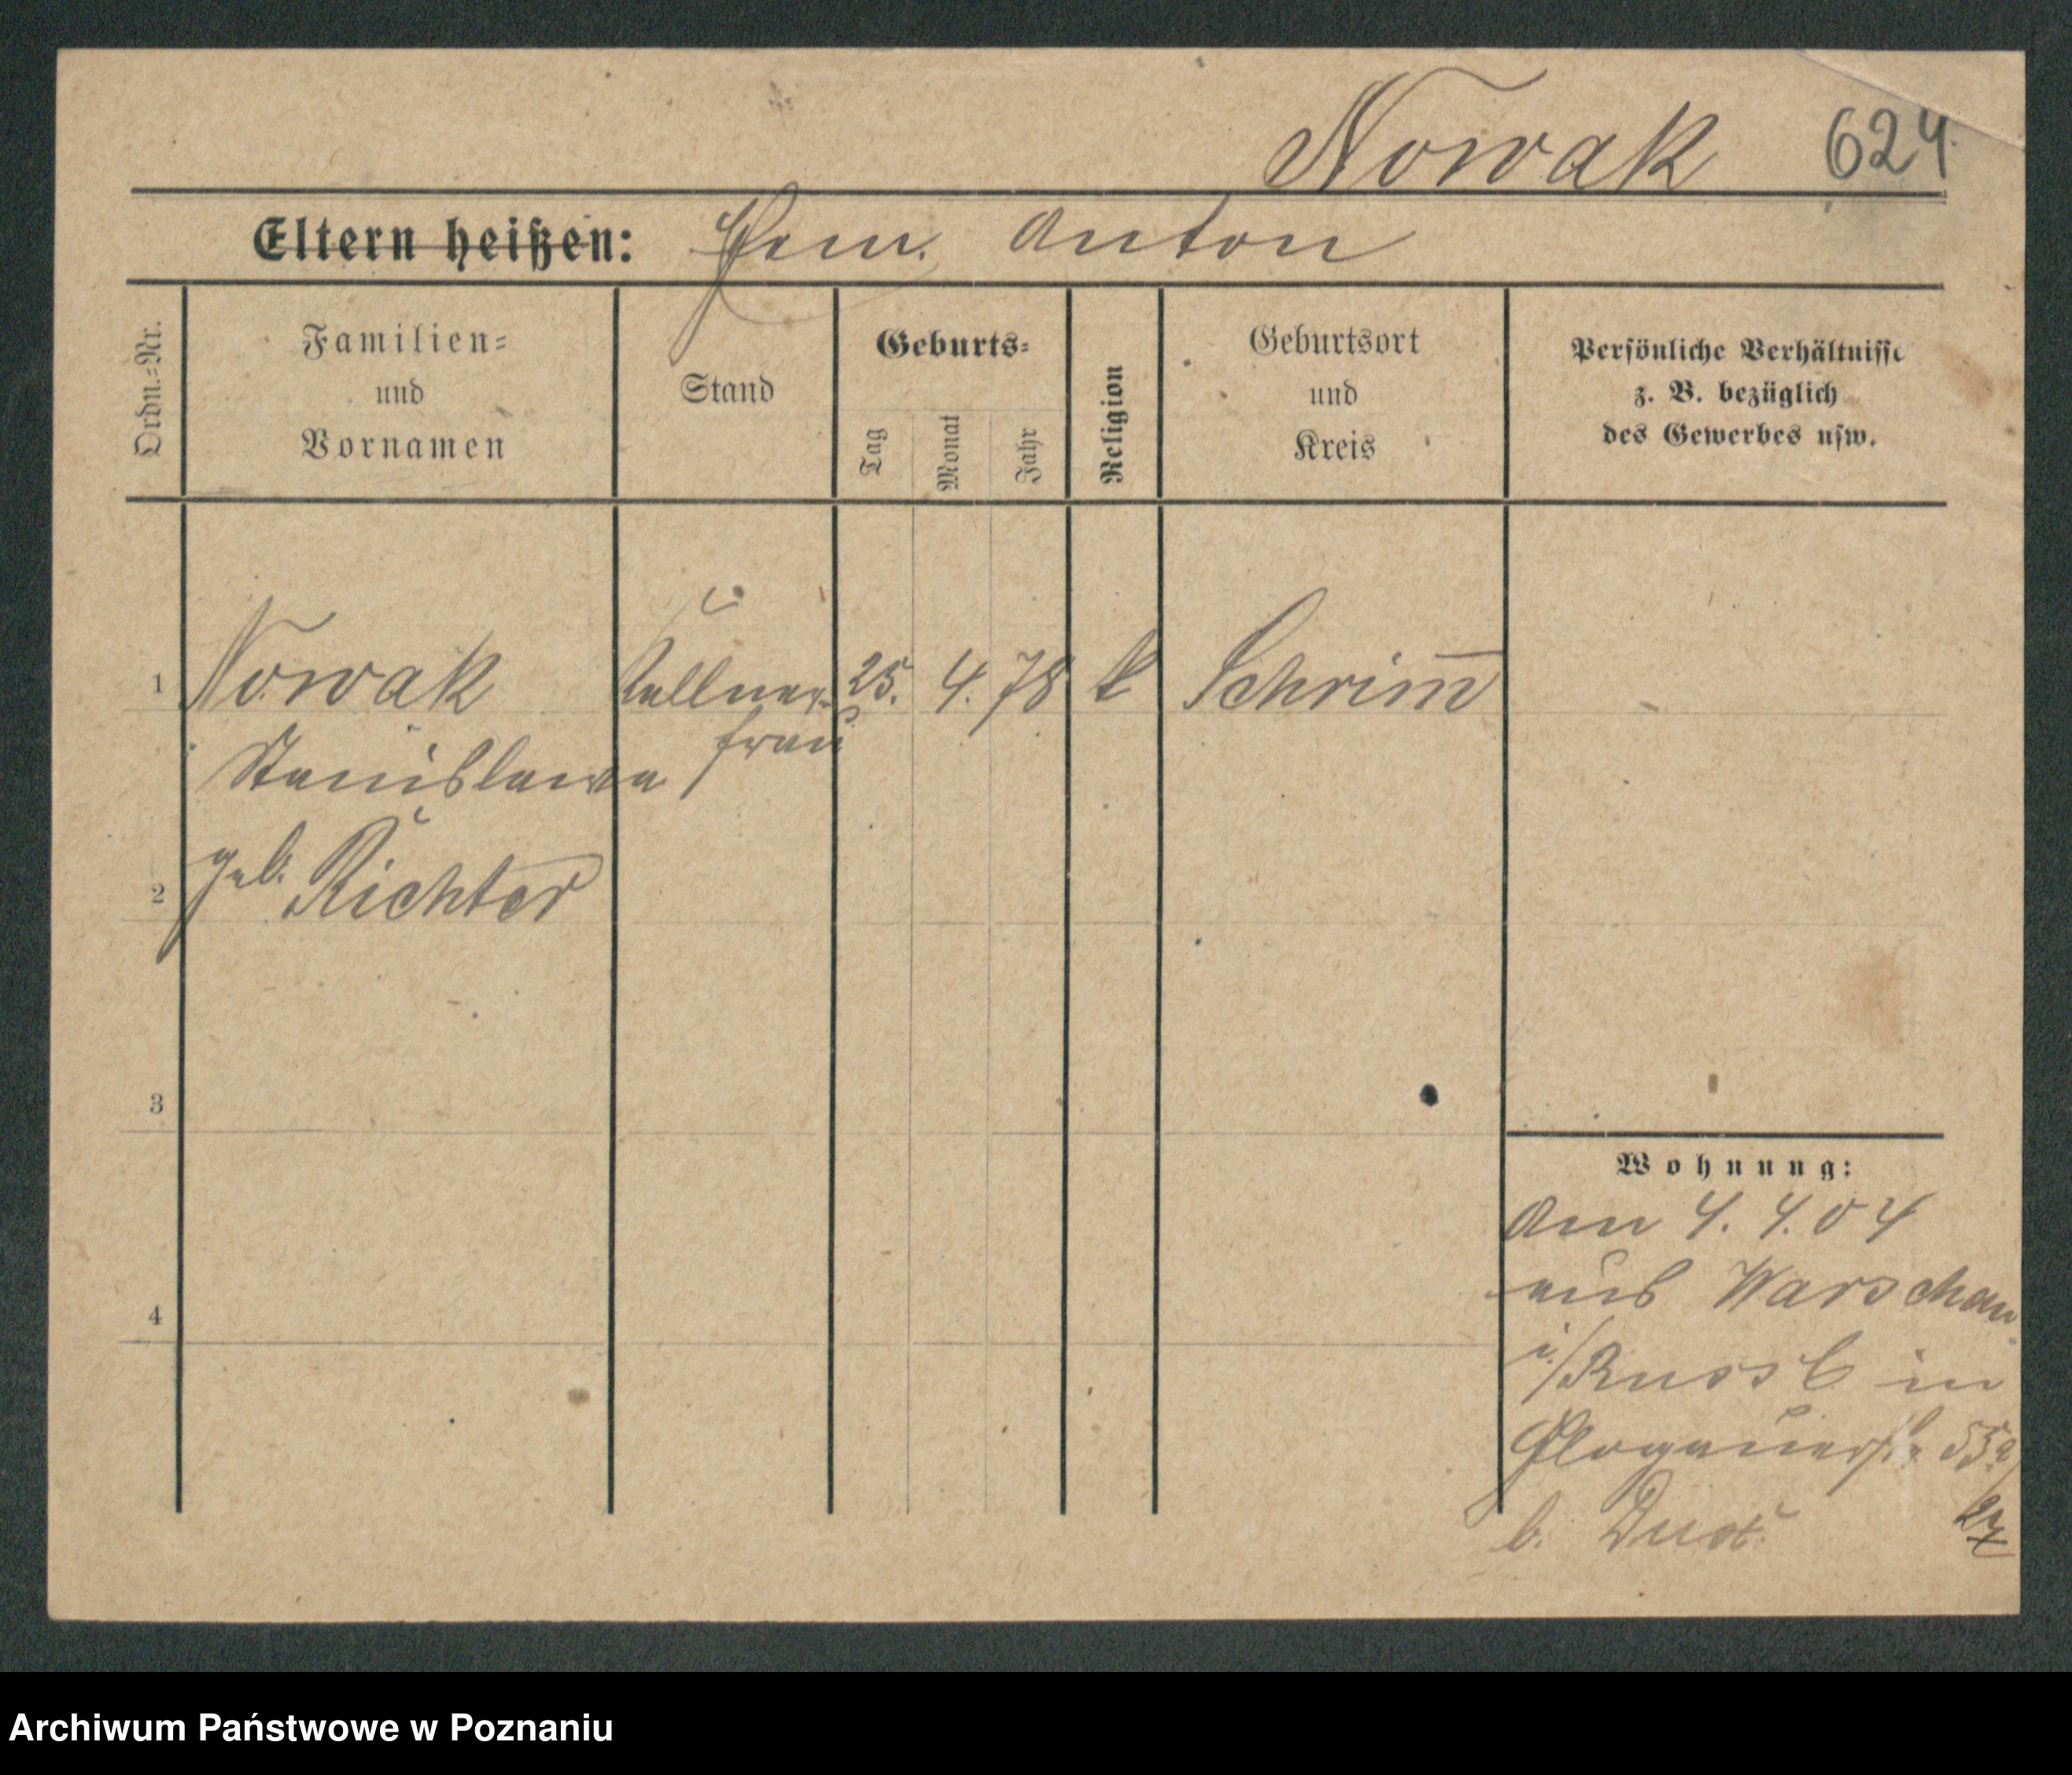 Nowak 624.
Eltern heißen: Anton
Ordn.=Nr.
Familien=
und
Vornamen
Stand
Geburts=
Tag
Monat
Jahr
Religion
Geburtsort
und
Kreis
Persönliche Verhältnisse
z. B. bezüglich
des Gewerbes usw.
1 Nowak Kellner= 25. 4. 78 k Schrim̅
frau
Stanislawa
2 geb. Richter
3
4
Wohnung:
Am 4. 4. 04
aus Warschau
i/Russl in
Glogauerstr 55a
b.
Archiwum Państwowe w Poznaniu